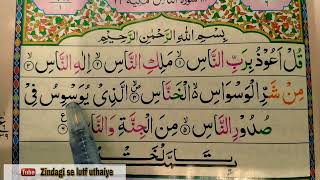 بِسْمِ اللهِ الرَّحْمٰنِ الرَّحِيْمِ
قُلْ اَعُوْذُ بِرَبِّ النَّاسِ ۙ۱ مَلِكِ النَّاسِ ۙ۲ اِلٰهِ النَّاسِ ۙ۳
مِنْ شَرِّ الْوَسْوَاسِ ۙ۬ الْخَنَّاسِ ۪ۙ۴ الَّذِيْ يُوَسْوِسُ فِيْ
صُدُوْرِ النَّاسِ ۙ۵ مِنَ الْجِنَّةِ وَالنَّاسِ
You Tube Zindagi se lutf uthaiye